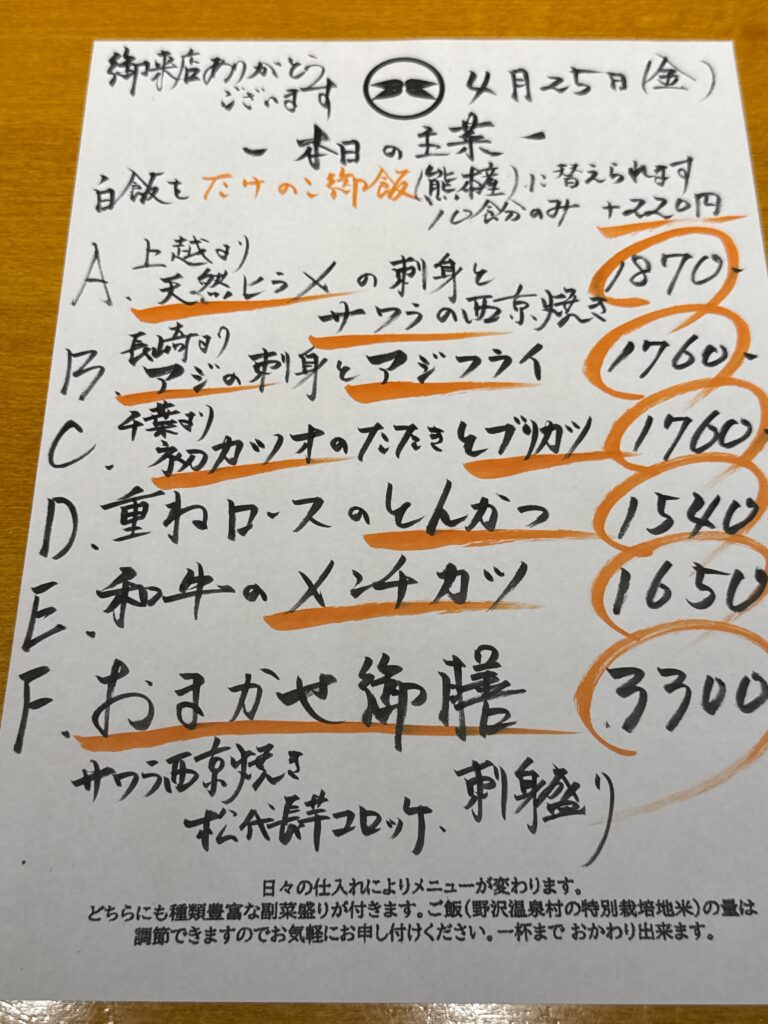 御来店ありがとう
ございます
4月25日(金)
- 本日の主菜 -
白飯をたけのこ御飯(熊本産)に替えられます
10食分のみ +220円
A. 上越より
天然ヒラメの刺身と
サワラの西京焼き
1870-
B. 長崎より
アジの刺身とアジフライ
1760-
C. 千葉より
初ガツオのたたきとブリカツ
1760-
D. 重ねロースのとんかつ
1540
E. 和牛のメンチカツ
1650
F. おまかせ御膳
3300
サワラ西京焼き
松代長芋コロッケ、刺身盛り
日々の仕入れによりメニューが変わります。
どちらにも種類豊富な副菜盛りが付きます。ご飯(野沢温泉村の特別栽培地米)の量は
調節できますのでお気軽にお申し付けください。一杯まで おかわり出来ます。